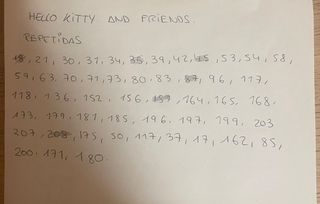 HELLO KITTY AND FRIENDS.
REPETIDAS
21, 30, 31, 34, 39, 42, 53, 54, 58,
59, 63, 70, 71, 73, 80, 83, 96, 117,
118, 136, 152, 156, 164, 165, 168.
173, 179, 181, 185, 196, 197, 199, 203
207, 175, 50, 117, 37, 17, 162, 85,
200, 171, 180.